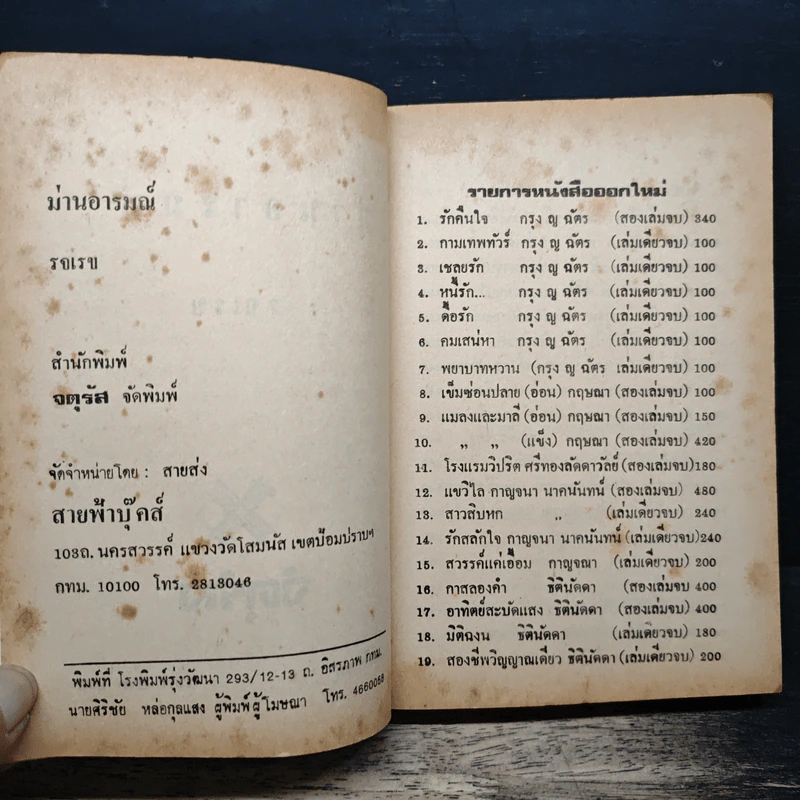 ม่านอารมณ์
รจเรข
สำนักพิมพ์
จตุรัส จัดพิมพ์
จัดจำหน่ายโดย : สายส่ง
สายฟ้าบุ๊คส์
103ถ. นครสวรรค์ แขวงวัดโสมนัส เขตป้อมปราบฯ
กทม. 10100 โทร. 2813046
พิมพ์ที่ โรงพิมพ์รุ่งวัฒนา 293/12-13 ถ. อิสรภาพ กทม.
นายศิริชัย หล่อกุลแสง ผู้พิมพ์ผู้โฆษณา โทร. 4660058
รายการหนังสือออกใหม่
1. รักคืนใจ กรุง ญ ฉัตร (สองเล่มจบ) 340
2. กามเทพทัวร์ กรุง ญ ฉัตร (เล่มเดียวจบ) 100
3. เชลยรัก กรุง ญ ฉัตร (เล่มเดียวจบ) 100
4. หนี้รัก... กรุง ญ ฉัตร (เล่มเดียวจบ) 100
5. ดื้อรัก กรุง ญ ฉัตร (เล่มเดียวจบ) 100
6. คมเสน่หา กรุง ญ ฉัตร (เล่มเดียวจบ) 100
7. พยาบาทหวาน (กรุง ญ ฉัตร เล่มเดียวจบ) 100
8. เข็มซ่อนปลาย (อ่อน) กฤษณา (สองเล่มจบ) 100
9. แมลงและมาลี (อ่อน) กฤษณา (สองเล่มจบ) 150
10. ,, ,, (แข็ง) กฤษณา (สองเล่มจบ) 420
11. โรงแรมวิปริต ศรีทองลัดดาวัลย์ (สองเล่มจบ)180
12. แขวิไล กาญจนา นาคนันทน์ (สองเล่มจบ) 480
13. สาวสิบหก ,, (เล่มเดียวจบ) 240
14. รักสลักใจ กาญจนา นาคนันทน์ (เล่มเดี่ยวจบ)240
15. สวรรค์แค่เอื้อม กาญจณา (เล่มเดียวจบ) 200
16. กาสลองคำ ธิตินัดดา (สองเล่มจบ 400
17. อาทิตย์สะบัดแสง ธิตินัดดา (สองเล่มจบ) 400
18. มิติฉงน ธิตินัดดา (เล่มเดียวจบ) 180
19. สองชีพวิญญาณเดียว ธิตินัดดา (เล่มเดียวจบ) 200